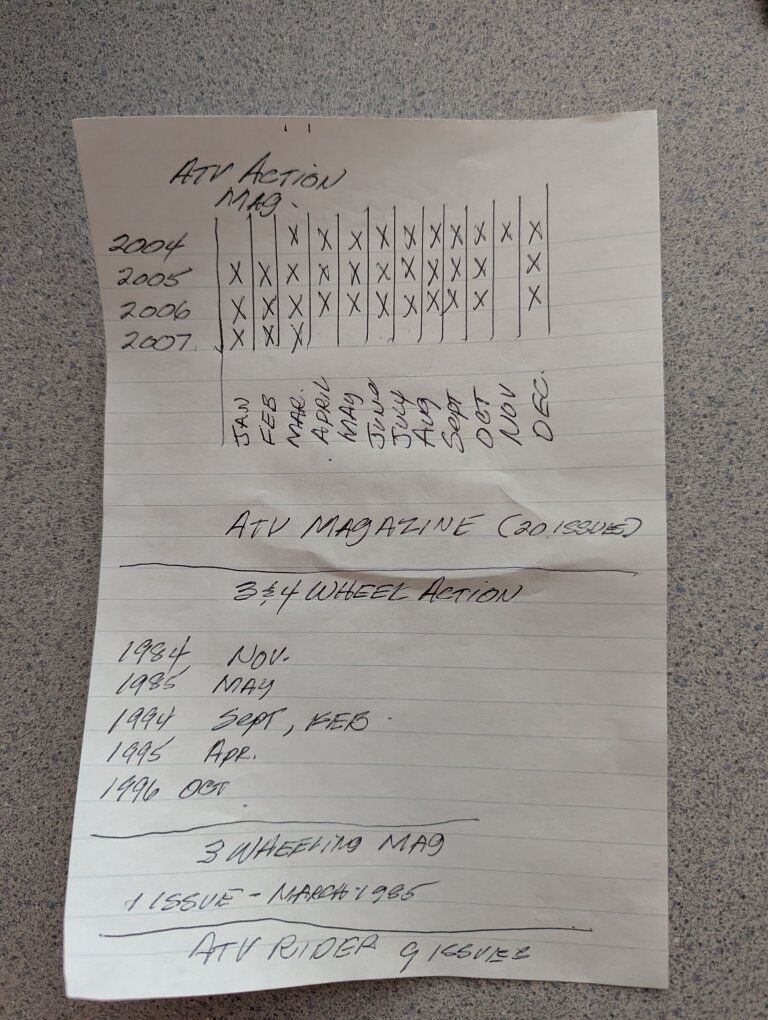 ATV ACTION
MAG.
2004 X X X X X X X X X X
2005 X X X X X X X X X X X
2006 X X X X X X X X X X X
2007 X X X
JAN FEB MAR. APRIL MAY JUNE JULY AUG SEPT OCT NOV DEC.
ATV MAGAZINE (20 ISSUE)
3 & 4 WHEEL ACTION
1984 NOV.
1985 MAY
1994 SEPT, FEB
1995 APR.
1996 OCT
3 WHEELING MAG
1 ISSUE - MARCH-1985
ATV RIDER 9 ISSUES